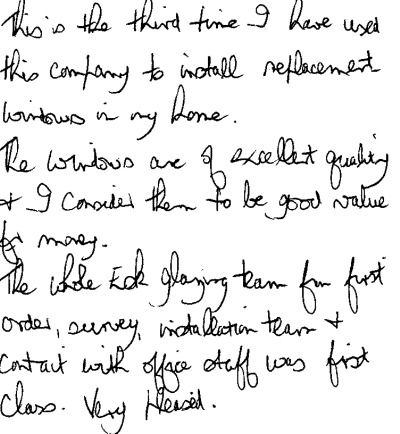 This is the third time I have used
this company to install replacement
windows in my home.
The windows are of excellent quality
+ I consider them to be good value
for money.
The whole Eck glazing team from first
order, survey, installation team +
contact with office staff was first
class. Very pleased.